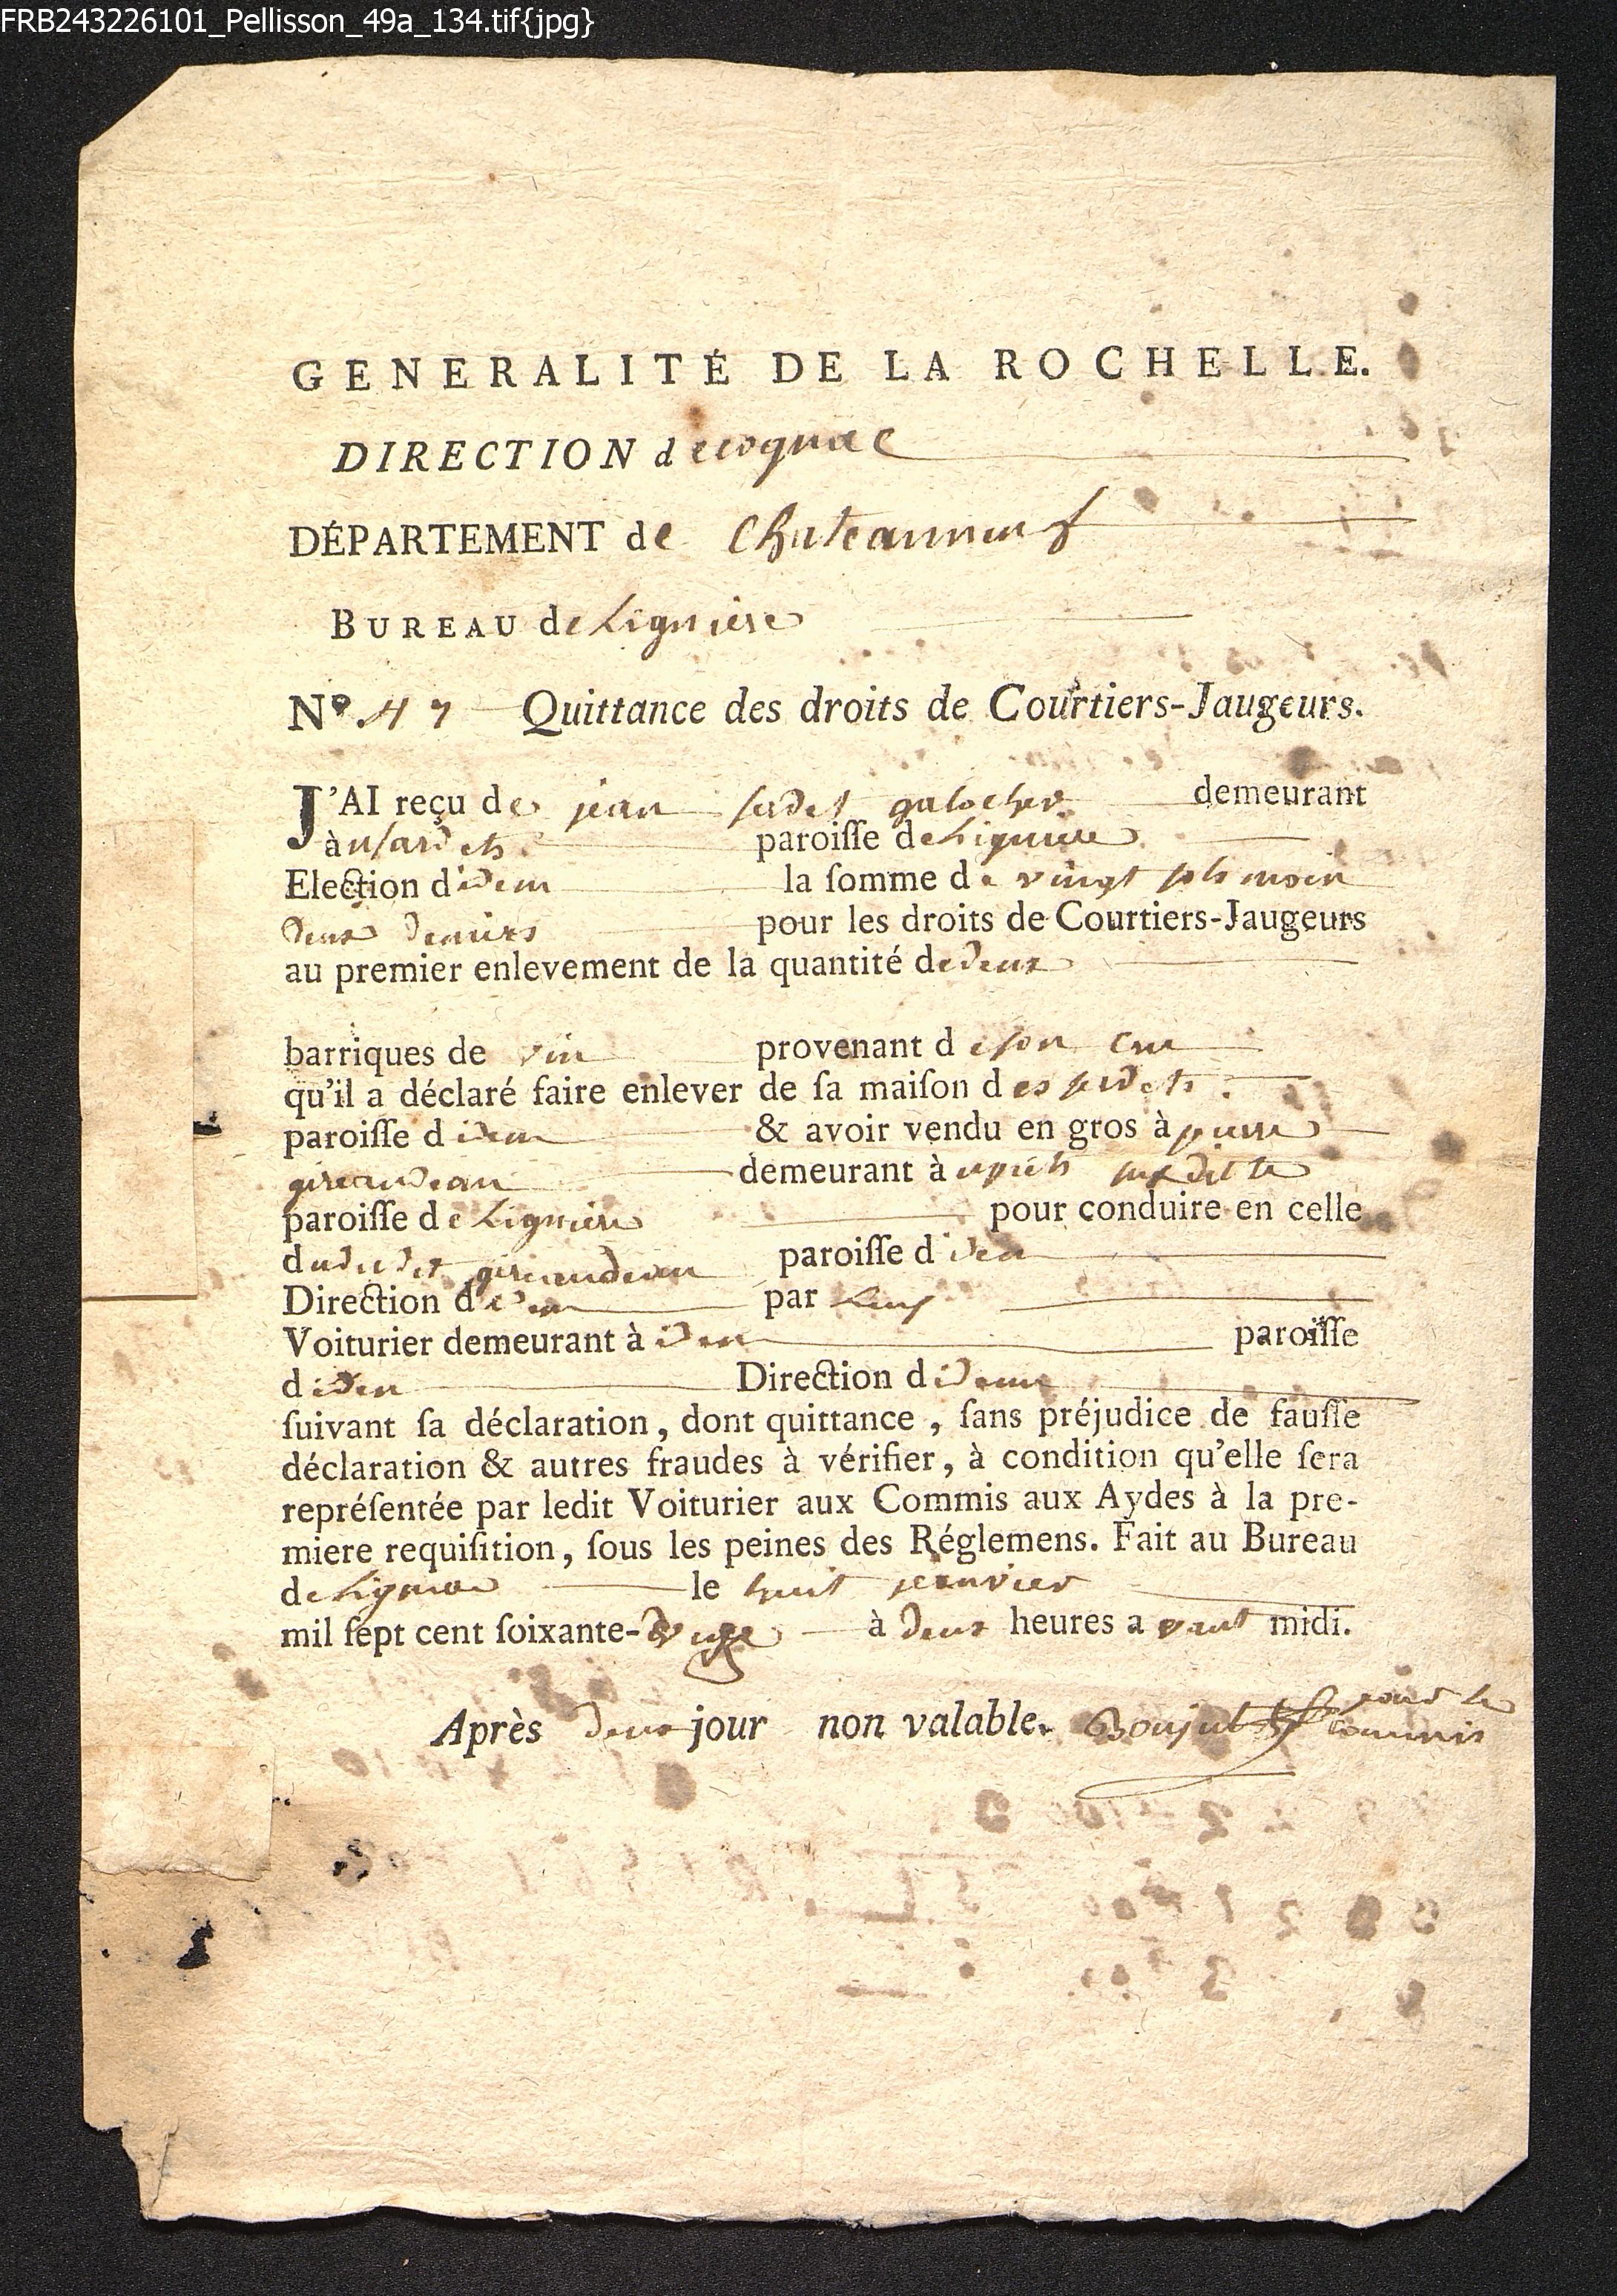 FRB243226101_Pellisson_49a_134.tif{jpg}
GENERALITÉ DE LA ROCHELLE.
DIRECTION de cognac
DÉPARTEMENT de Chateauneuf
BUREAU de Ligniere
Nº. 47 Quittance des droits de Courtiers-Jaugeurs.
J'AI reçu de jean demeurant
à paroiſſe de Ligniere
Election d idem la ſomme de vingt ſols moin
deux deniers pour les droits de Courtiers-Jaugeurs
au premier enlevement de la quantité de deux
barriques de vin provenant de ſon cru
qu'il a déclaré faire enlever de ſa maiſon des
paroiſſe d idem & avoir vendu en gros à pierre
giraudeau demeurant à
paroiſſe de Ligniere pour conduire en celle
du giraudeau paroiſſe d idem
Direction d idem par luy
Voiturier demeurant à idem paroiſſe
d idem Direction d idem
ſuivant ſa déclaration, dont quittance, ſans préjudice de fauſſe
déclaration & autres fraudes à vérifier, à condition qu'elle ſera
repréſentée par ledit Voiturier aux Commis aux Aydes à la pre-
miere requiſition, ſous les peines des Réglemens. Fait au Bureau
de Ligniere le huit janvier
mil ſept cent ſoixante- à deux heures avant midi.
Après deux jour non valable. Boujut pour le
commis